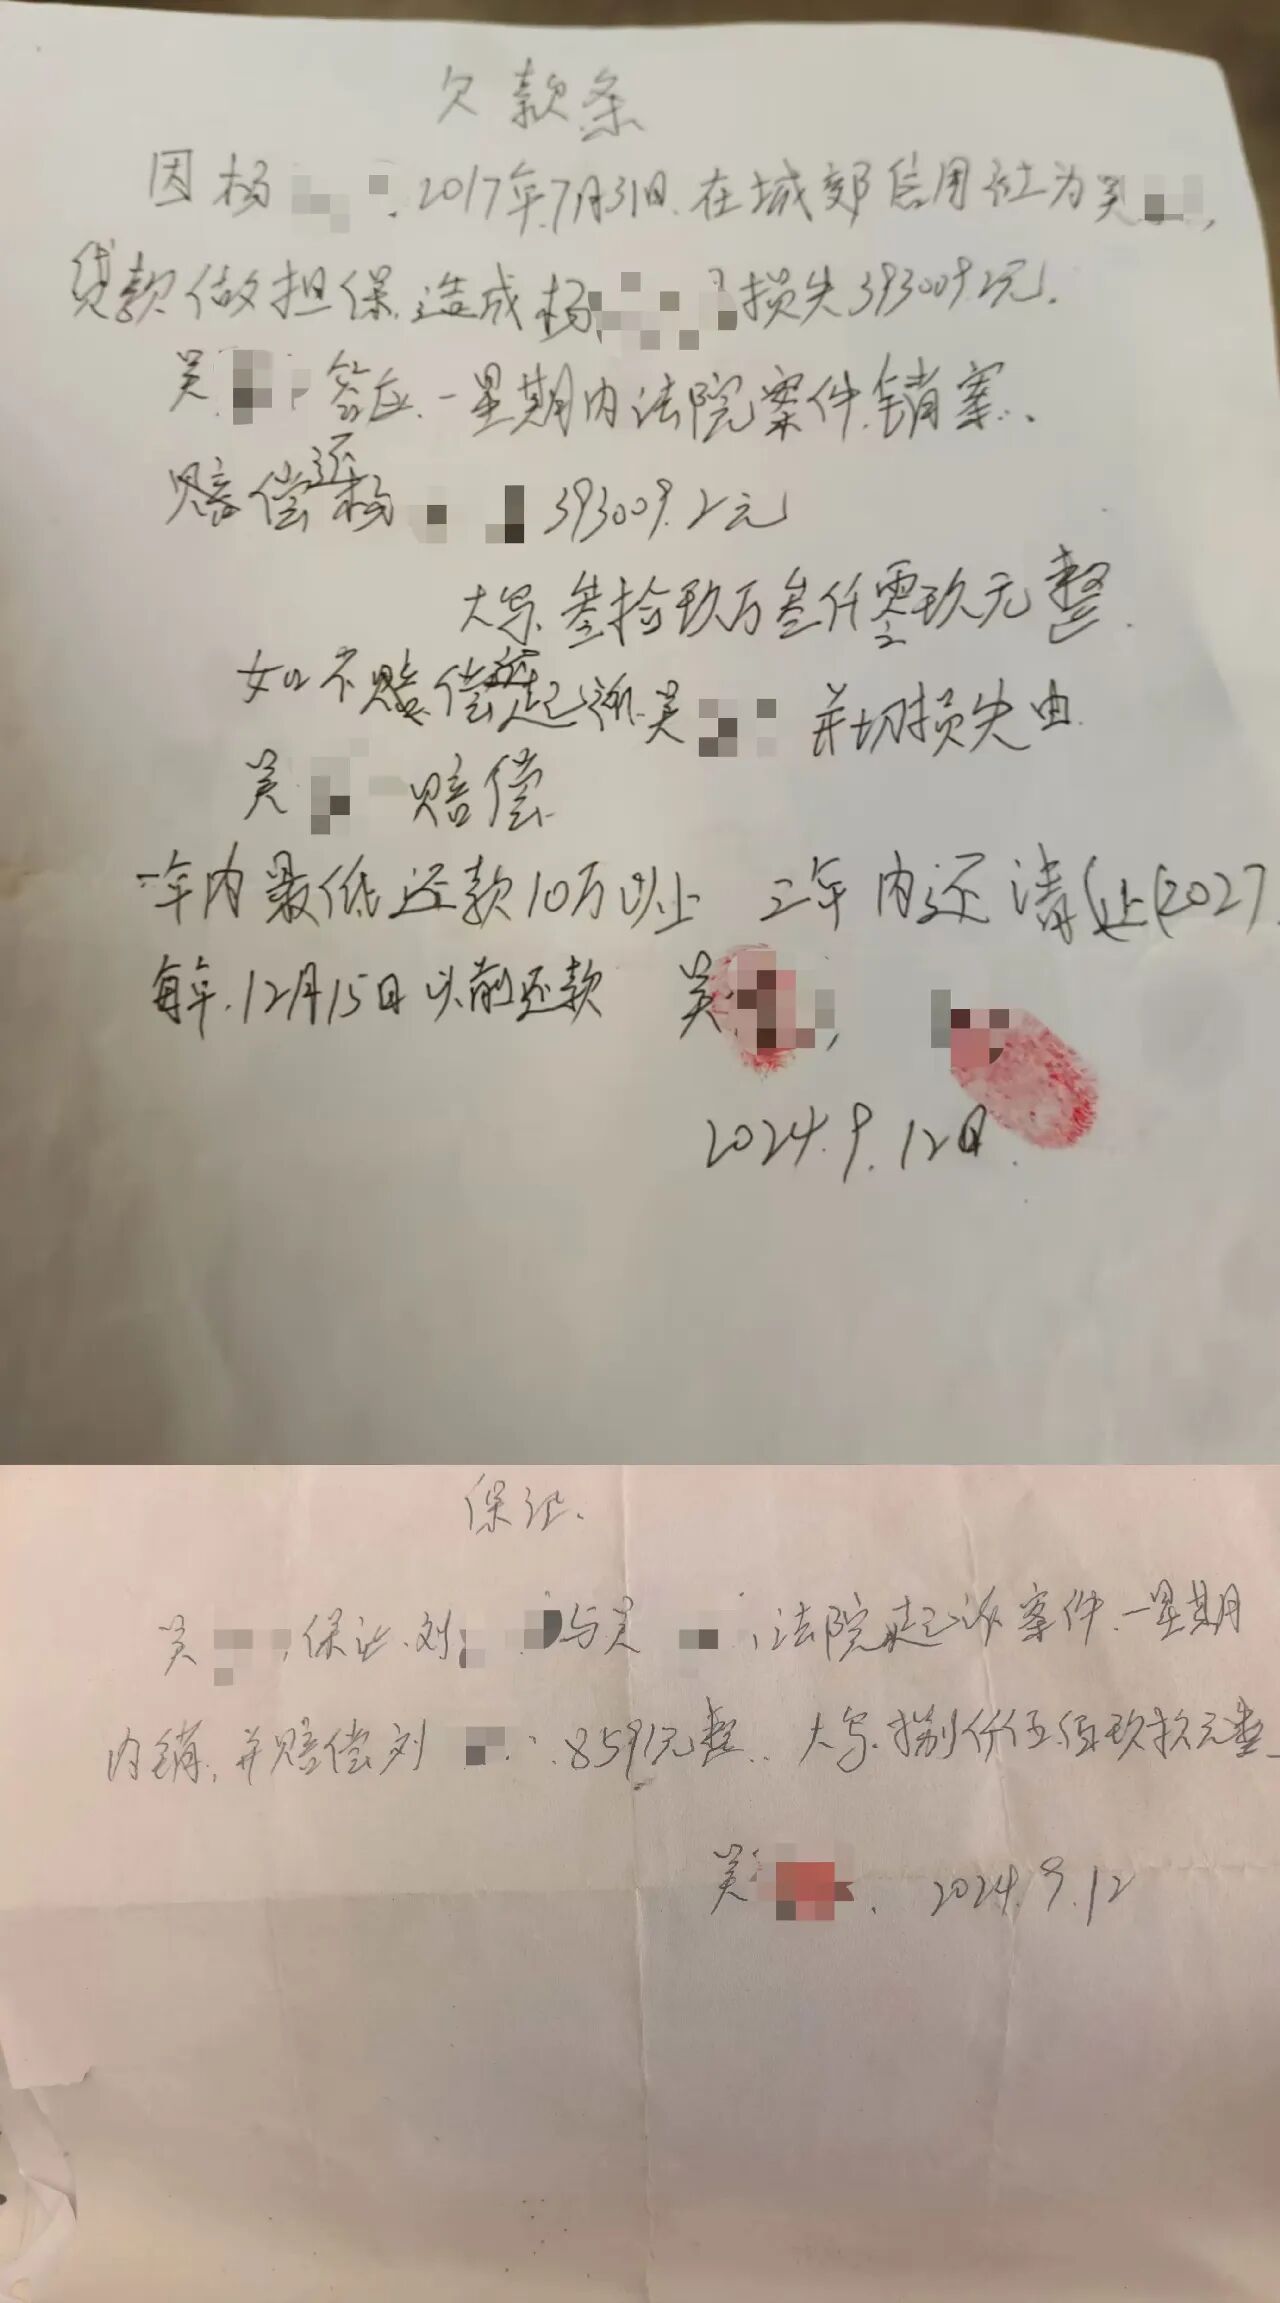 欠款条
因杨 2017年7月31日在城郊信用社为吴
贷款做担保造成杨 损失393009.2元.
吴 答应一星期内法院案件销案..
赔偿还杨 393009.2元
大写叁拾玖万叁仟零玖元整.
如不赔偿还起诉吴 并切损失由
吴 赔偿
一年内最低还款10万以上 三年内还清(止(2027
每年.12月15日以前还款 吴
2024.9.12日.
保证.
吴 保证.刘 与吴 法院起诉案件一星期
内销,并赔偿刘 8591元整.大写.捌仟伍佰玖拾元整
吴 . 2024.9.12